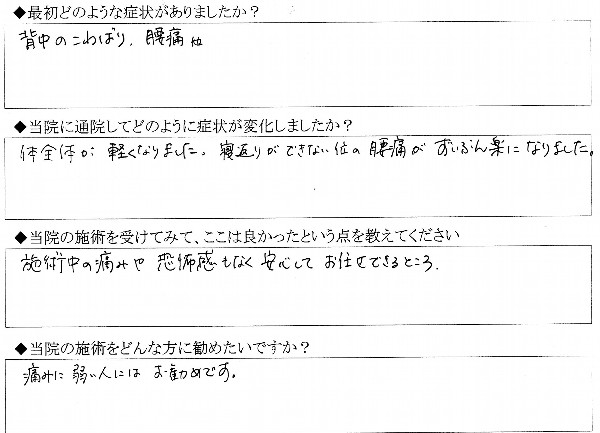 ◆最初どのような症状がありましたか？
背中のこわばり、腰痛 他
◆当院に通院してどのように症状が変化しましたか？
体全体が 軽くなりました。寝返りができない位の腰痛が ずいぶん楽になりました。
◆当院の施術を受けてみて、ここは良かったという点を教えてください
施術中の痛みや 恐怖感もなく 安心して お任せできるところ.
◆当院の施術をどんな方に勧めたいですか？
痛みに 弱い人には お勧めです。